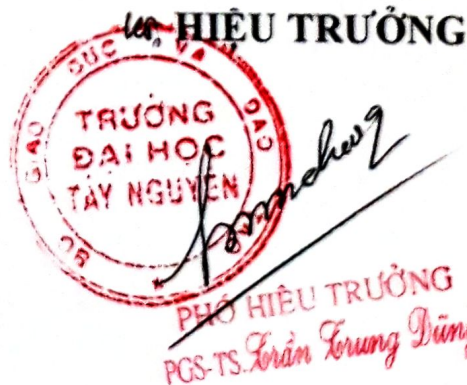 HIỆU TRƯỞNG
BỘ GIÁO DỤC VÀ ĐÀO
TRƯỜNG
ĐẠI HỌC
TÂY NGUYÊN
PHÓ HIỆU TRƯỞNG
PGS-TS. Trần Trung Dũng